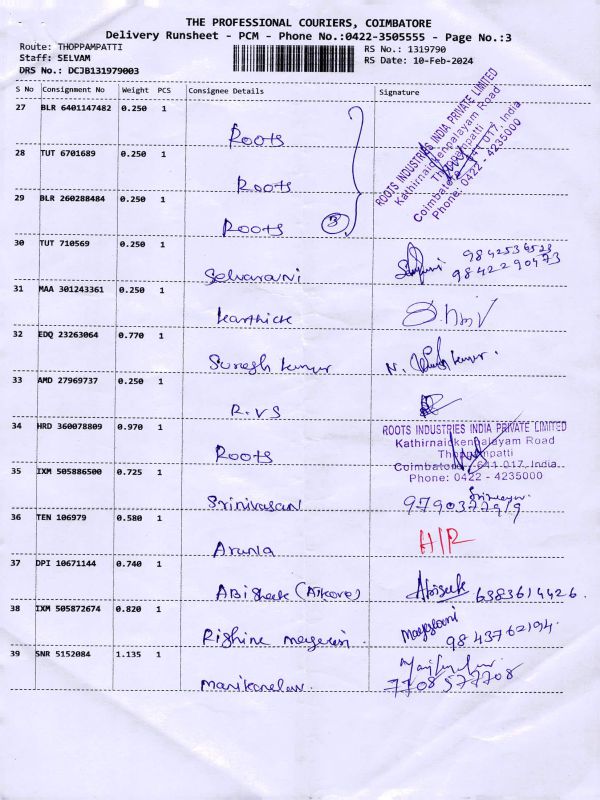 THE PROFESSIONAL COURIERS, COIMBATORE
Delivery Runsheet - PCM - Phone No.:0422-3505555 - Page No.:3
Route: THOPPAMPATTI
Staff: SELVAM
DRS No.: DCJB131979003
RS No.: 1319790
RS Date: 10-Feb-2024
S No Consignment No Weight PCS Consignee Details Signature
27 BLR 6401147482 0.250 1 Roots
28 TUT 6701689 0.250 1 Roots
29 BLR 260288484 0.250 1 Roots 3
ROOTS INDUSTRIES INDIA PRIVATE LIMITED
Kathirnaickenpalayam Road
Thoppampatti
Coimbatore - 641 017, India
Phone: 0422 - 4235000
30 TUT 710569 0.250 1 Selvarani 9842536523
9842290473
31 MAA 301243361 0.250 1 karthick
32 EDQ 23263064 0.770 1 Suresh kumar N. kumar.
33 AMD 27969737 0.250 1 R.VS
34 HRD 360078809 0.970 1 Roots
ROOTS INDUSTRIES INDIA PRIVATE LIMITED
Kathirnaickenpalayam Road
Thoppampatti
Coimbatore - 641 017, India
Phone: 0422 - 4235000
35 IXM 505886500 0.725 1 Srinivasan
36 TEN 106979 0.580 1 H/R
37 DPI 10671144 0.740 1 Abisheek Abiseek 6383614426.
38 IXM 505872674 0.820 1 9843762194.
39 SNR 5152084 1.135 1 7708577708